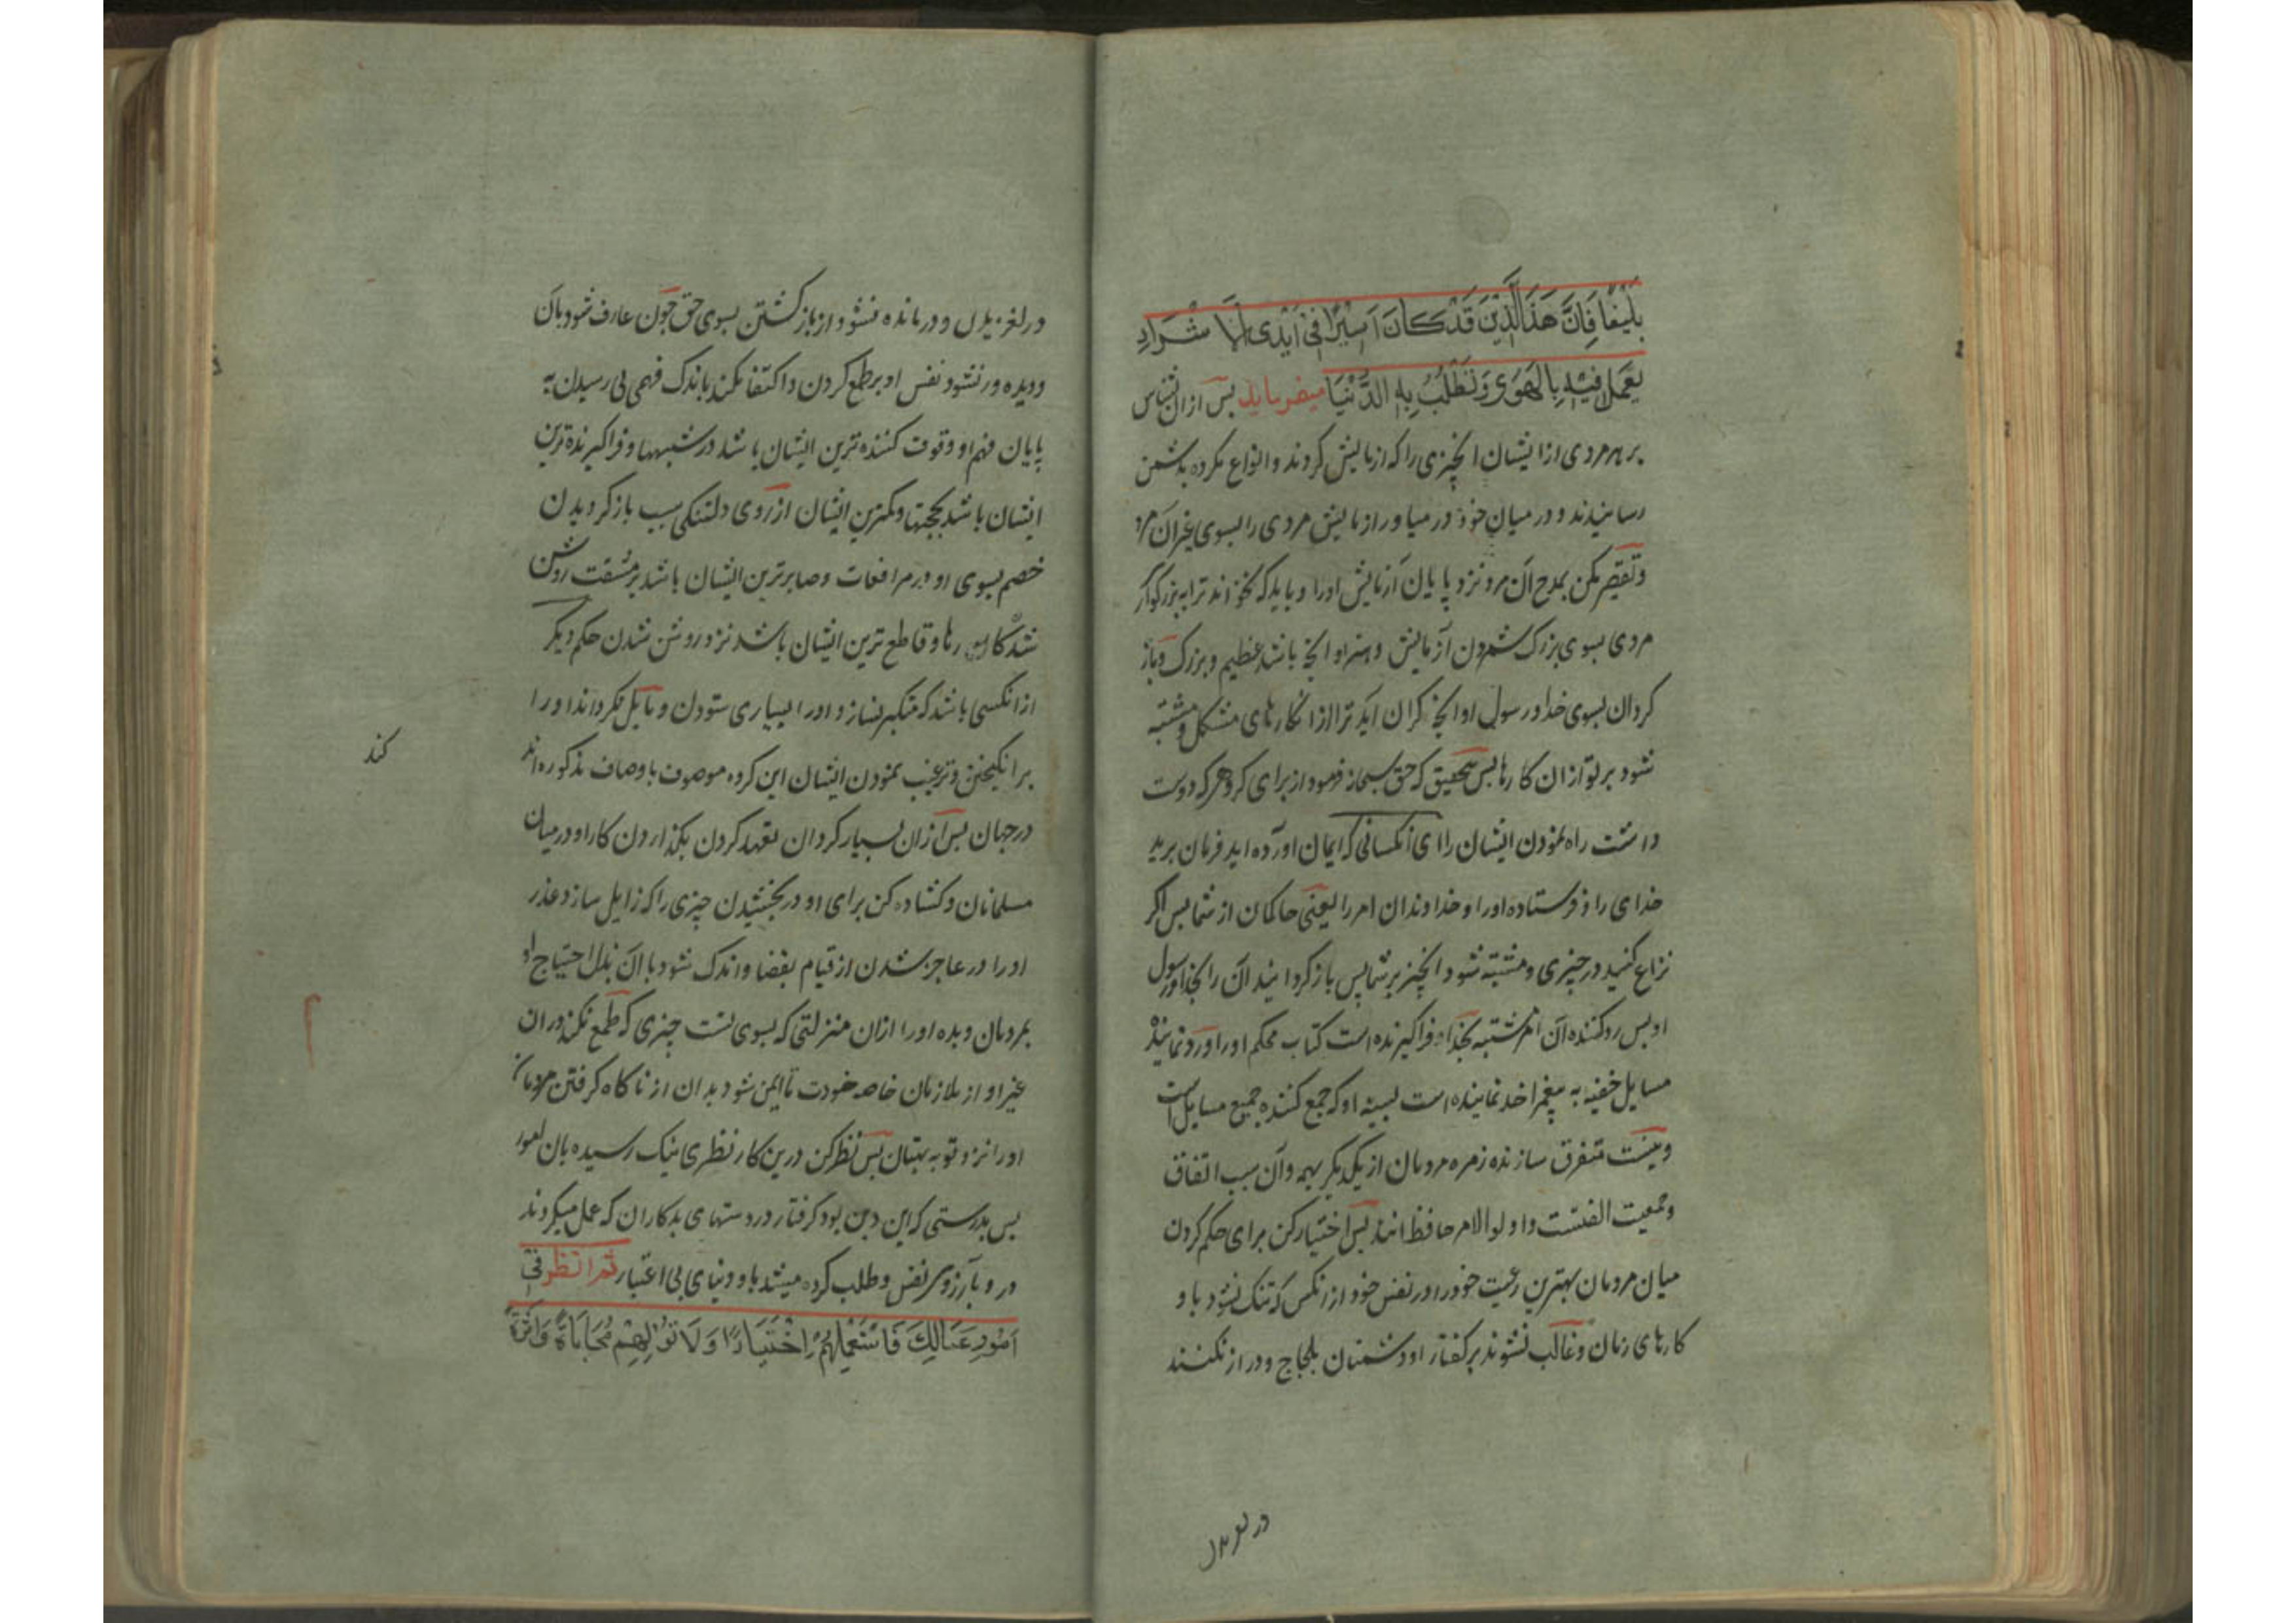 بَلِیْغًا فَاِنَّ هَذَا الَّدِیْنَ قَدْ کَانَ اَسِیْرًا فِیْ اَیْدِی الْاَشْرَارِ
یُعْمَلُ فِیْهِ بِالْهَوٰی وَتُطْلَبُ بِهِ الدُّنْیَا میفرماید پس ازان بشناس
بر هر مردی از ایشان انچیزی را که ازمایش کردند و انواع مکروه بدشمن
رسانیدند و در میان خود در میاور ازمایش مردی را بسوی غیر آن مرد
و تقصیر مکن بمدح آن مرد نزد پایان آزمایش اورا و باید که نخواند ترا به بزرگوار
مردی بسوی بزرک شمردن آزمایش و هنر او انچه باشد عظیم و بزرک و باز
کردان بسوی خدا و رسول او انچه کران اید ترا ازان کارهای مشکل و مشتبه
شود بر تو ازان کارها پس بتحقیق که حق سبحانه فرمود از برای کروهی که دوست
داشت راه نمودن ایشان را ای آنکسانی که ایمان اورده اید فرمان برید
خدای را و فرستاده اورا و خداوندان امر را یعنی حاکمان از شما پس اکر
نزاع کنید در چیزی و مشتبه شود انچیز بر شما پس باز کردانید آن را بخدا و رسول
او پس رد کننده آن امر مشتبه بخدا فراکیرنده است کتاب محکم اورا و رد نماینده
مسایل خفیه به پیغمبر اخذ نماینده است بسینه او که جمع کننده جمیع مسایل است
و نیست متفرق سازنده زمره مردمان از یکدیکر بهم و آن سبب اتفاق
و جمعیت الفتست و اولو الامر حافظ انند پس اختیار کن برای حکم کردن
میان مردمان بهترین رعیت خود را در نفس خود از انکس که تنک نشود باو
کارهای زمان و غالب نشوند بر کفتار او دشمنان بلجاج و دراز نکشند
در لغزیدن
در لغزیدن و درمانده نشود از باز کشتن بسوی حق چون عارف شود بآن
و دیده ور نشود نفس او بر طمع کردن و اکتفا نکند باندک فهمی بی رسیدن به
پایان فهم او و قوف کننده ترین ایشان باشد در شبهها و فراکیرنده ترین
ایشان باشد بحجتها و کمترین ایشان از روی دلتنکی بسبب باز کردیدن
خصم بسوی او در مرافعات و صابرترین ایشان باشد بر مشقت روشن
شدن کارها و قاطع ترین ایشان باشد نزد روشن شدن حکم دیکر
از انکسی باشد که متکبر نسازد اورا بسیاری ستودن و مایل نکرداند اورا
بر انکیختن و ترغیب نمودن ایشان این کروه موصوف باوصاف مذکوره اند
کند
در جهان پس ازان بسیار کردان تعهد کردن بکذاردن کار او در میان
مسلمانان و کشاده کن برای او در بخشیدن چیزی را که زایل سازد عذر
اورا در عاجز شدن از قیام بقضا و اندک شود با آن بذل احتیاج او
بمردمان و بده اورا ازان منزلتی که بسوی تست چیزی که طمع نکند دران
غیر او از ملازمان خاصه خودت تا ایمن شود بدان از ناکاه کرفتن مردمان
اورا نزد تو به بهتان پس نظر کن درین کار نظری نیک رسیده بان امور
پس بدرستی که این دین بود کرفتار در دستهای بدکاران که عمل میکردند
در و بآرزوی نفس و طلب کرده میشد باو دنیای بی اعتبار ثم انظر فِیْ
اُمُوْرِ عُمَّالِکَ فَاسْتَعْمِلْهُمْ اِخْتِیَارًا وَلَا تُوَلِّهِمْ مُحَابَاةً وَاَثَرَةً